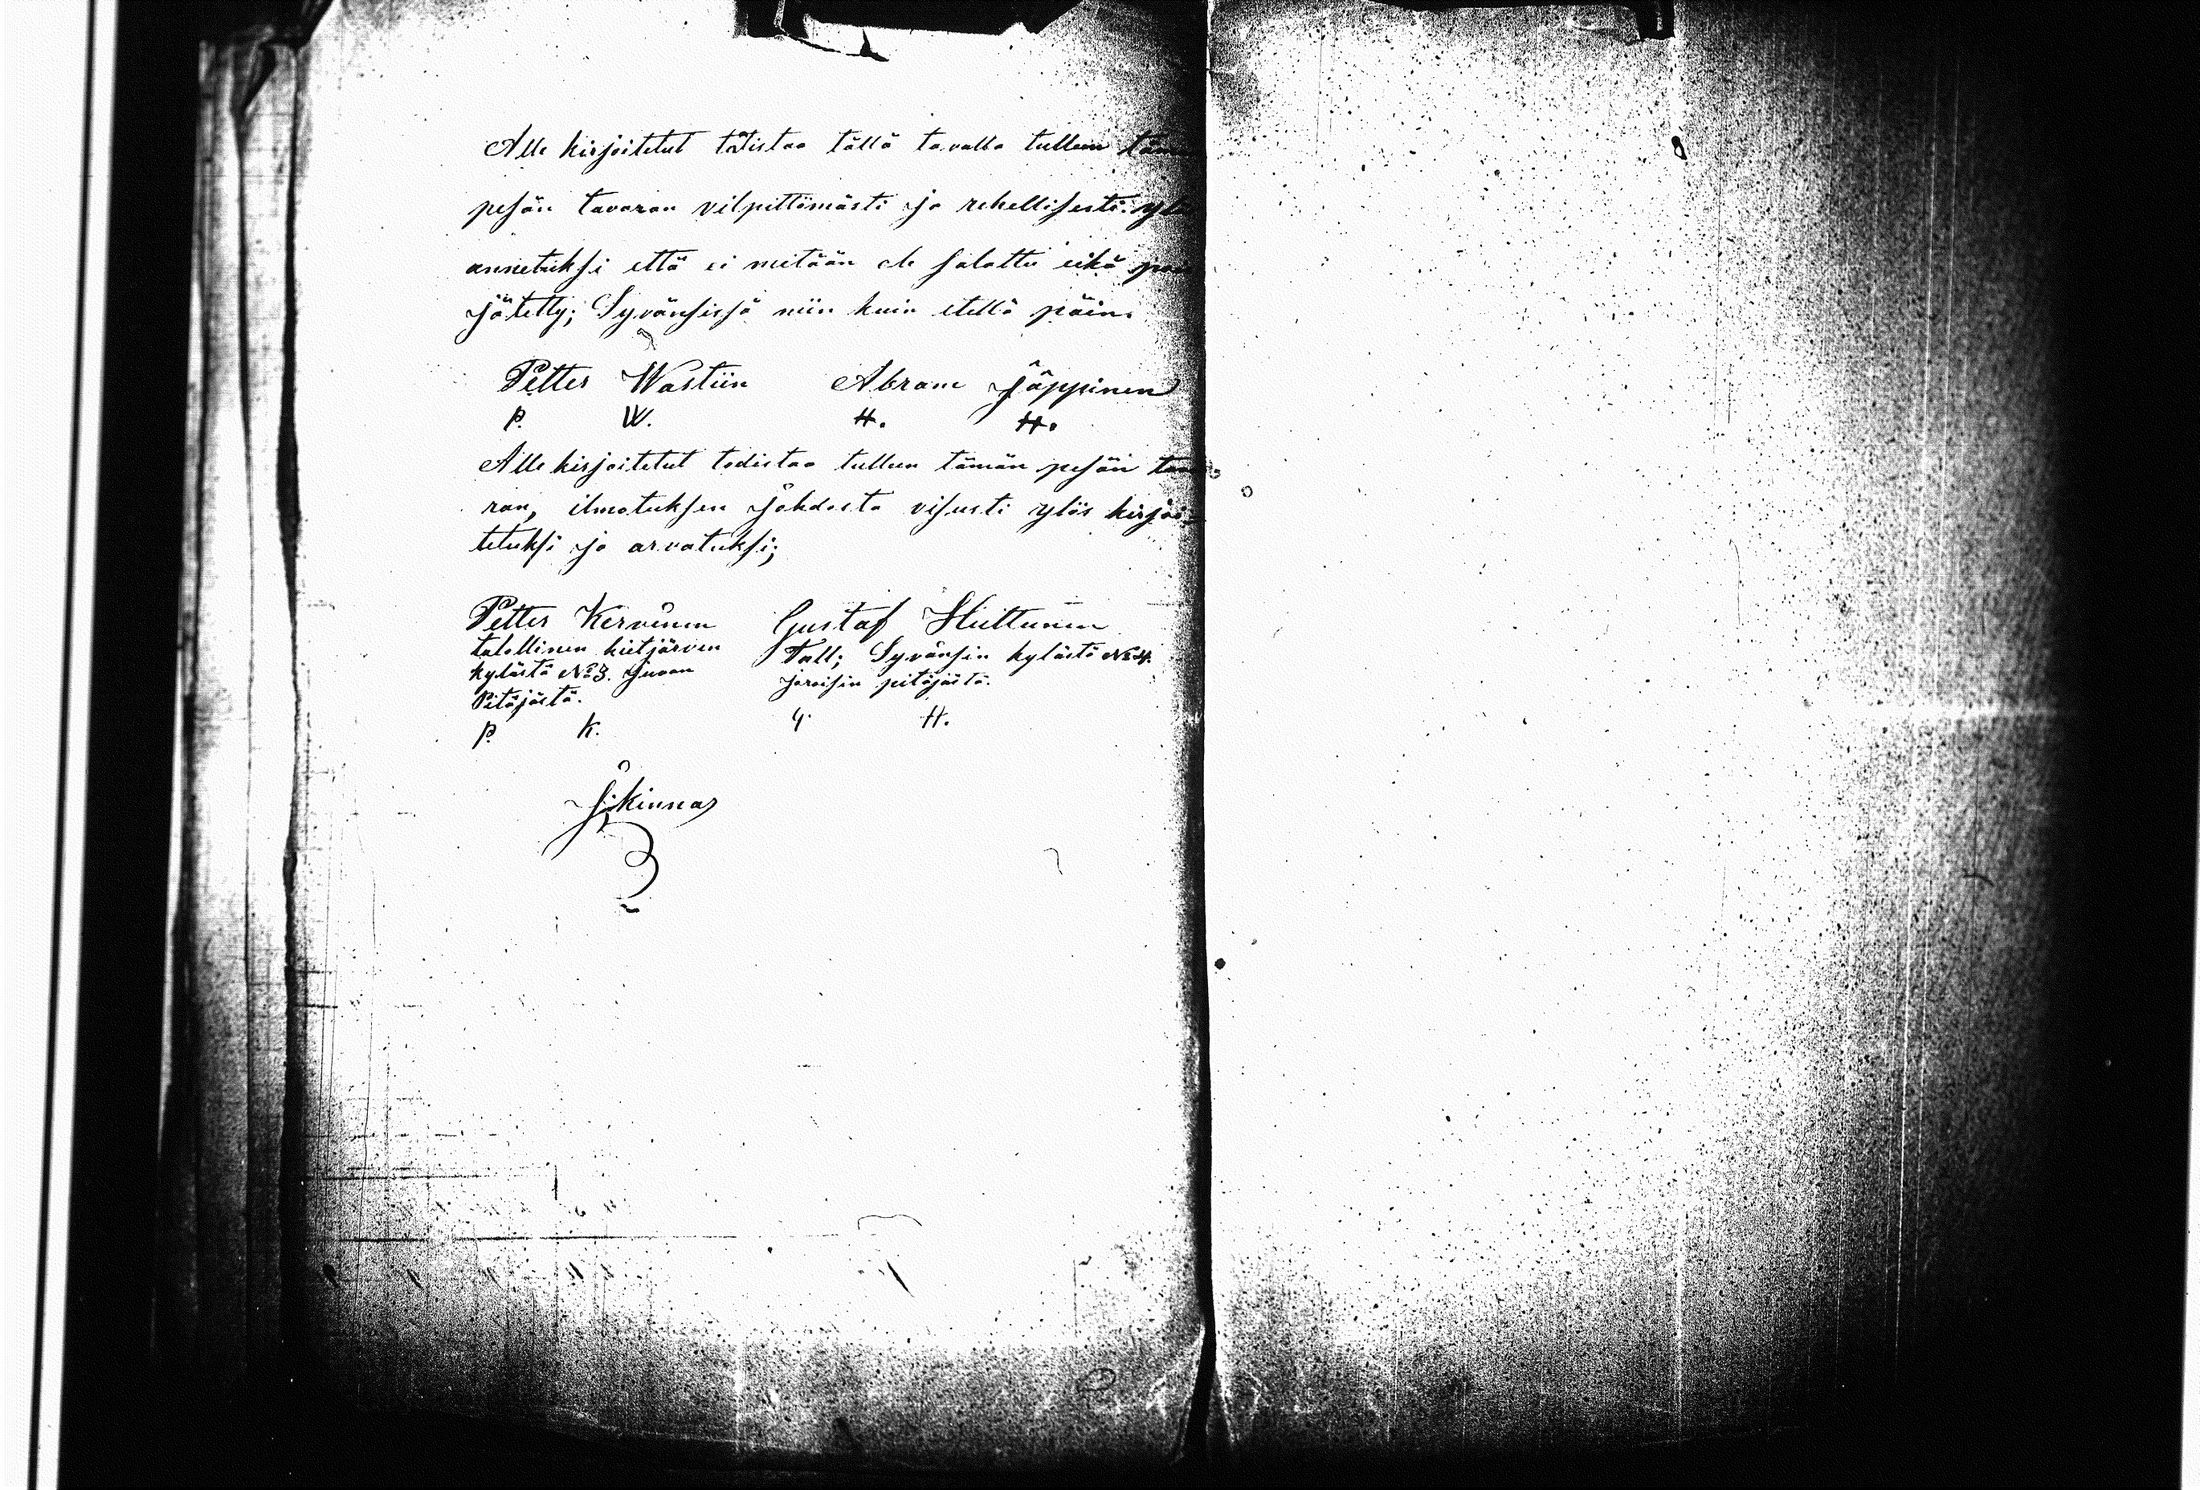 Alle kirjoitetut todistaa tällä tavalla tulleen tämän
pesän tavaran vilpittömästi ja rehellisesti ylös
annetuksi että ei mitään ole salattu eikä pois
jätetty; Syvänsissä niin kuin etellä päin.
Petter Wastiin Abram Jäppinen
P. W. H. H.
Alle kirjoitetut todistaa tulleen tämän pesän tava
ran, ilmotuksen johdosta visusti ylös kirjoi-
tetuksi ja arvatuksi;
Petter Kervinen Gustaf Huttunen
talollinen kietjärven Tall; Syvänsin kylästä No 4.
kylästä No 3. Juvan Joroisin pitäjästä.
Pitäjästä.
P. K. G. H.